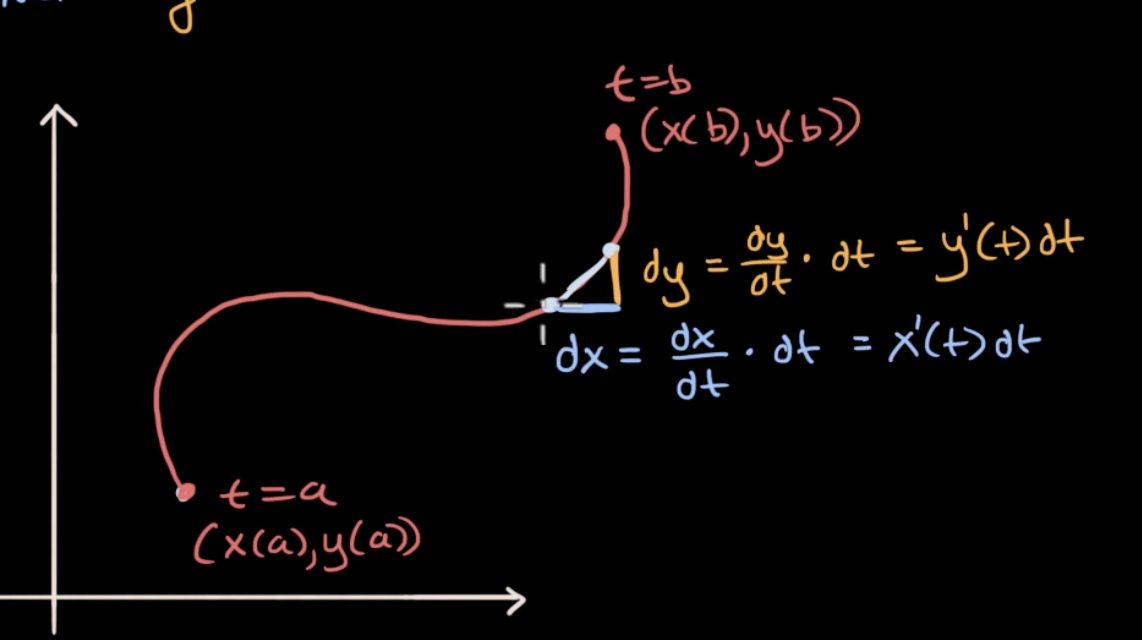 t=b
(x(b),y(b))
dy = dy/dt · dt = y'(t)dt
dx = dx/dt · dt = x'(t)dt
t=a
(x(a),y(a))